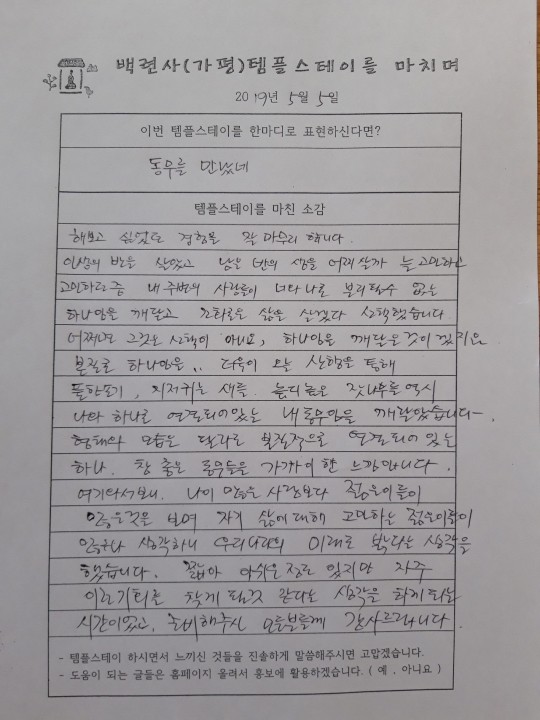 백련사(가평)템플스테이를 마치며
2019년 5월 5일
이번 템플스테이를 한마디로 표현하신다면?
동무를 만났네
템플스테이를 마친 소감
해보고 싶었던 경험을 잘 마무리 합니다.
인생의 반을 살았고 남은 반의 생을 어찌살까 늘 고민하고
고민하던 중 내 주변의 사람들이 너와 나로 분리될수 없는
하나임을 깨닫고 조화로운 삶을 살겠다 선택했습니다
어쩌면 그것은 선택이 아니요, 하나임을 깨달은것이겠지요
본질로 하나임은.. 더욱이 오늘 산행을 통해
풀한포기, 지저귀는 새들. 높디높은 잣나무들 역시
나와 하나로 연결되어있는 내동무임을 깨달았습니다~.
형태와 모습은 달라도 본질적으로 연결되어 있는
하나. 참 좋은 동무들을 가까이 한 느낌입니다.
여기와서보니. 나이 많은 사람보다 젊은이들이
많은것을 보며 자기 삶에대해 고민하는 젊은이들이
많구나 생각하니 우리나라의 미래도 밝다는 생각을
했습니다. 짧아 아쉬운 정도 있지만 자주
이런기회를 찾게 될것 같다는 생각을 하게되는
시간이었고, 준비해주신 모든분들께 감사드립니다.
- 템플스테이 하시면서 느끼신 것들을 진솔하게 말씀해주시면 고맙겠습니다.
- 도움이 되는 글들은 홈페이지 올려서 홍보에 활용하겠습니다. ( 예 , 아니요 )